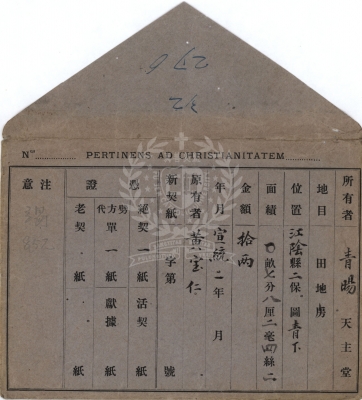 Nᵘˢ PERTINENS AD CHRISTIANITATEM
所有者 青暘 天主堂
地目 田地房
位置 江陰縣二保 圖青下
面績 〇畝七分八厘二毫四絲二
金額 拾兩
年月 宣統二年 月
原有者 黃寶仁
新契紙 字第 號
憑證
絕契一紙 活契 紙
方單一紙 獻據 紙
代勞
老契 紙 紙
注意
32